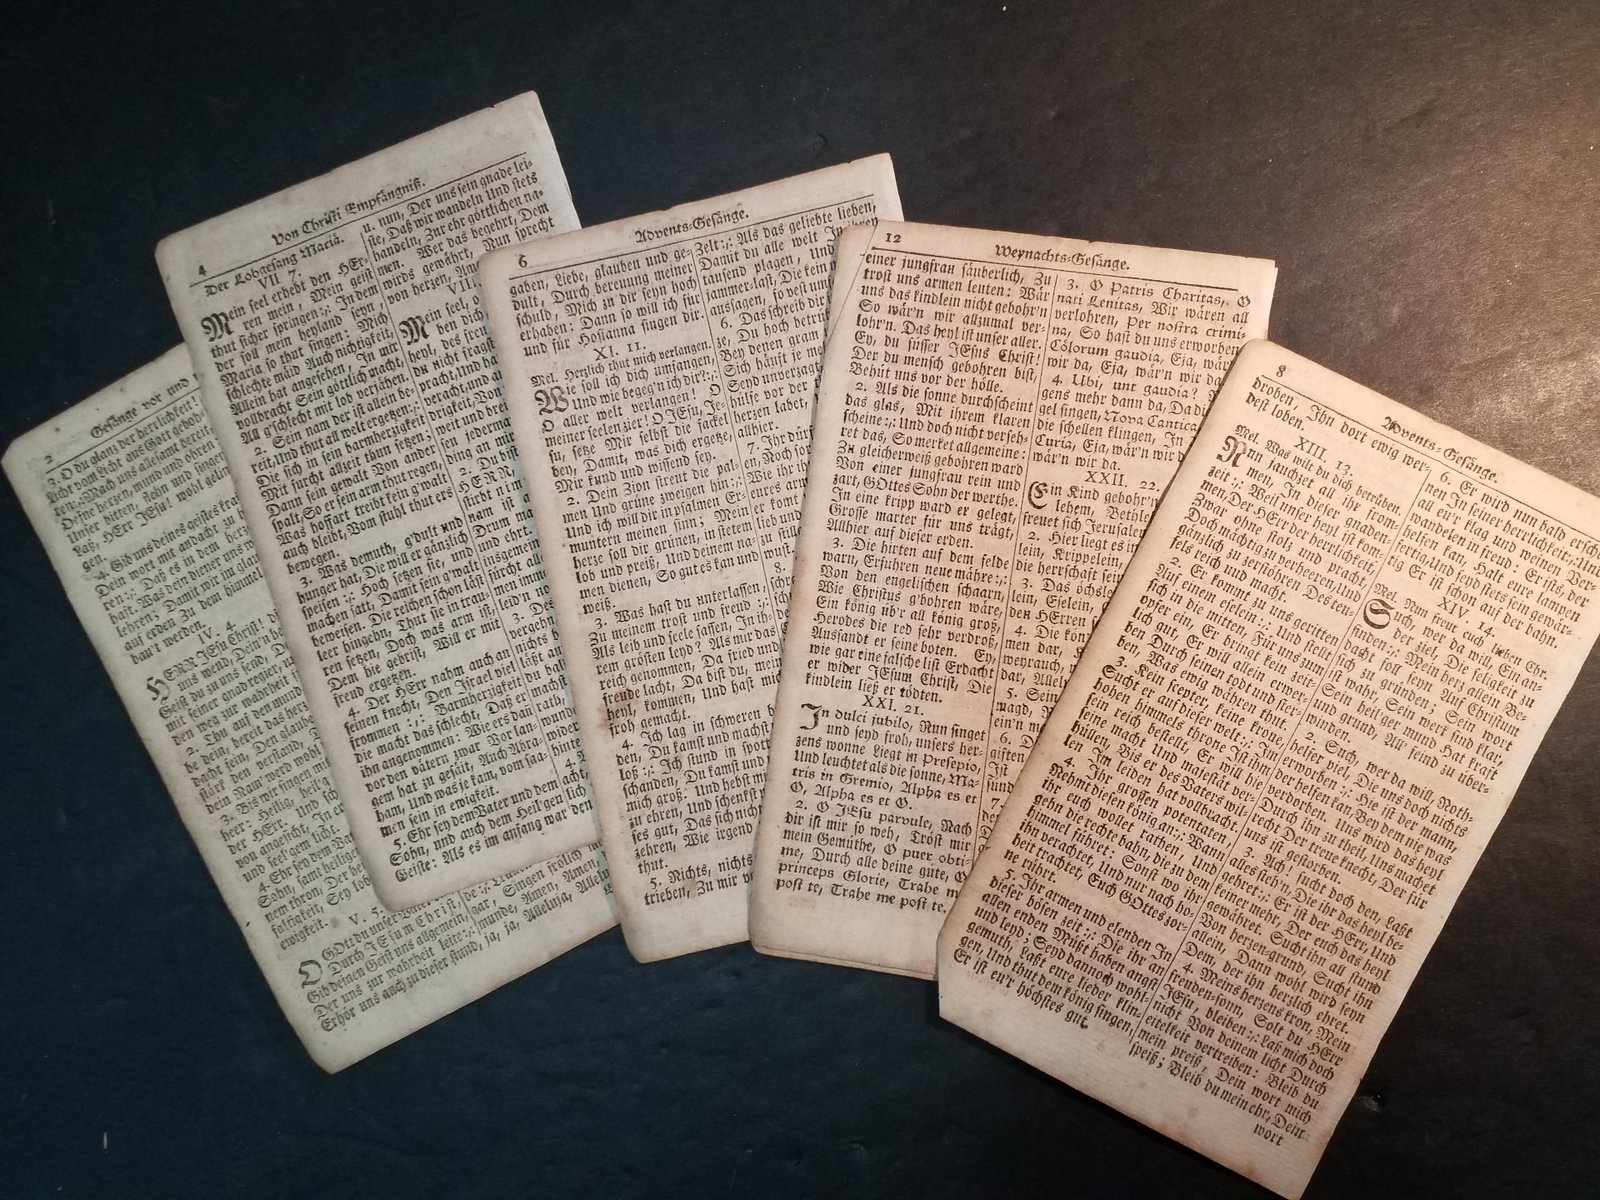 2
Gesänge vor und
3. O du glanz der herrlichkeit!
Licht vom licht aus Gott gebohr
ren:,: Mach uns allesamt bereit
Oefne hertzen, mund und ohren
Unser bitten, flehn und singen
Laß, HErr JEsu! wohl gelin
4. Gib uns deines geistes kraft
Dein wort mit andacht zu h
ren:,: Daß es in dem herz
haft. Was dein diener uns
lehren; Damit wir im glau
auf erden, Zu dem himmel
bau't werden.
IV. 4.
HERR JEsu Christ! di
uns wend, Dein'n he
Geist du zu uns send, De
mit seiner gnad regier, u
den weg zur wahrheit
2. Thu auf den mund
de dein, bereit das herz
dacht fein, Den glaube
stärk den verstand,
dein Nam' werd wohl
3. Bis wir singen mit
heer: Heilig, heilg
der HErr. Und sch
von angesicht, In e
und seelgem licht.
4. Ehr sey dem Va
Sohn, samt heilige
nem thron, Der he
faltigkeit, Sey lob
ewigkeit.
V. 5.
O GOtt du unser Vater
Durch JEsum Christ,
Gib deinen Geist uns allgemein,
Der uns zur wahrheit leite:,:
Erhör uns auch zu dieser stund,
gar, Singen frölich
munde, Amen, Amen,
ja, ja, Alleluja,
4
Von Christi Empfängniß.
Der Lobgesang Mariä.
VII 7.
Mein seel erhebt den HEr-
ren mein, Mein geist
thut sicher springen:,: In dem
der soll mein heyland seyn
Maria so thut singen: Mich
schlechte mäid Auch nichtigkeit,
Allein hat angesehen, In mir
vollbracht Sein göttlich macht,
All g'schlecht mit lob verjähen.
2. Sein nam der ist allein be-
reit, Und thut all welt ergetzen:,:
Die sich in sein barmherzigkeit
Mit furcht allzeit thun setzen;
Dann sein gewalt Von ander
spalt, So er sein arm thut regen,
Was hoffart treibt kein g'walt
auch bleibt, Vom stuhl thut ers
bewegen.
3. Was demuth, g'dult und
hunger hat, Die will er gänzlich
speisen:,: Hoch setzen sie, und
machen satt, Damit sein g'walt
beweisen. Die reichen schon läst
leer hingehn, Thut sie in trau-
ren setzen, Doch was arm ist,
Dem hie gebrist, Will er mit
freud ergetzen.
4. Der HErr nahm auch an
seinen knecht, Den Israel viel
frommen :,: Barmherzigkeit
die macht das schlecht, Daß er
ihn angenommen: Wie ers dan
vor den vätern zwar Vor lan-
gem hat zu gesäit, Auch Abra-
ham, Und was je kam, vom saa-
men sein in ewigkeit.
5. Ehr sey dem Vater und dem
Sohn, und auch dem Heil'gen
Geiste: Als es im anfang war
u. nun, Der uns sein gnade lei-
ste, Daß wir wandeln Und stets
handeln, Zur ehr göttlichen na-
men. Wer das begehrt, Dem
wirds gewährt, Nun sprecht
von herzen, Am
VII
Mein seel, o
ben dich
heyl, des freu
du nicht fragst
veracht, Und ha
veracht, und an
digkeit, Von
weit und brei
sen jederma
ding an mir
2. Du bist
HERR,
stirbt n'im
nam ist
Drum ma
und ehrt,
insgemein
fürcht all
men immer
leid'n no
3. De
vergehn
nichts b
läßt an
du bal
machst
rath,
wunder
hinte
4.
acht,
lich
den
6
Advents-Gesänge.
gaben, Liebe, glauben und ge-
dult, Durch bereuung meiner
schuld, Mich zu dir seyn hoch
erhaben: Dann so will ich für
und für Hosianna singen dir.
XI. 11.
Mel. Herzlich thut mich verlangen.
Wie soll ich dich umfangen,
Und wie begeg'n ich dir?:,:
O aller welt verlangen! O
meiner seelen zier! O JEsu, Je-
su, setze Mir selbst die fackel
bey, Damit, was dich ergetze,
Mir kund und wissend sey.
2. Dein Zion streut die pal-
men Und grüne zweigen hin:,:
Und ich will dir in psalmen Er-
muntern meinen sinn; Mein
herze soll dir grünen, in stetem
lob und preiß, Und deinem na-
men dienen, So gut es kan und
weiß.
3. Was hast du unterlassen
Zu meinem trost und freud :,:
Als leib und seele sassen, In ih-
rem grösten leyd? Als mir das
reich genommen, Da fried und
freude lacht, Da bist du, mein
heyl, kommen, Und hast mich
froh gemacht.
4. Ich lag in schweren b
den, Du kamst und machst
loß :,: Ich stund in spott
schanden, Du kamst und
mich groß: Und hebst mi
zu ehren, Und schenkst
ses gut, Das sich nich
zehren, Wie irgend
thut.
5. Nichts, nichts
trieben, Zu mir v
Zelt:,: Als das geliebte lieben,
Damit du alle welt In ihren
tausend plagen, Und
jammer-last, Die kein
aussagen, so vest um
6. Das schreib dir
ze, Du hoch betrü
Bey denen gram
Sich häuft je me
Seyd unverzag
hülfe vor der
herzen labet,
allhier.
7. Ihr dür
en, Noch for
Wie ihr ih
eures arm
er kom
lieb und
zu still
wust.
8.
schre
12
Weynachts-Gesänge.
einer jungfrau säuberlich, Zu
trost uns armen leuten: Wär
uns das kindlein nicht gebohr'n
So wär'n wir allzumal ver-
lohr'n. Das heyl ist unser aller.
Ey, du süsser JEsus Christ!
Der du mensch gebohren bist,
Behüt uns vor der hölle.
2. Als die sonne durchscheint
das glas, Mit ihrem klaren
scheine:,: Und doch nicht verseh-
ret das, So merket allgemeine:
Zu gleicherweiß gebohren ward
Von einer jungfrau rein und
zart, GOttes Sohn der werthe.
In eine kripp ward er gelegt,
Grosse marter für uns trägt,
Allhier auf dieser erden.
3. Die hirten auf dem felde
warn, Erfuhren neue mähre:,:
Von den engelischen schaarn,
Wie Christus g'bohren wäre,
Ein könig üb'r all könig groß,
Herodes die red sehr verdroß,
Aussandt er seine boten. Ey,
wie gar eine falsche list Erdacht
er wider JEsum Christ, Die
kindlein ließ er tödten.
XXI. 21.
In dulci jubilo, Nun singet
und seyd froh, unsers her-
zens wonne Liegt in Presepio,
Und leuchtet als die sonne, Ma-
tris in Gremio, Alpha es et
O, Alpha es et O.
2. O JEsu parvule, Nach
dir ist mir so weh, Tröst mir
mein Gemüthe, O puer opti-
me, Durch alle deine güte, O
princeps Glorie, Trahe m
post te, Trahe me post te.
3. O Patris Charitas, O
nati Lenitas, Wir wären all
verlohren, Per nostra crimi-
na, So hast du uns erworben
Cölorum gaudia, Eja, wär
wir da, Eja, wär'n wir da
4. Ubi, unt gaudia?
gens mehr dann da, Da di
gel singen, Nova Cantica,
die schellen klingen, In
Curia, Eja, wär'n wir d
wär'n wir da.
XXII. 22.
Ein Kind gebohr'n
lehem, Bethle
freuet sich Jerusale
2. Hier liegt es in
lein, Krippelein,
die herrschaft sein
3. Das öchsle
lein, Eselein,
den HErren
4. Die kön
men dar,
weyrauch,
dar, Allel
5. Sein
magd,
ein'n m
6. D
giften
Ist
7.
8
Advents-Gesänge.
droben, Ihn dort ewig wer-
dest loben.
XIII. 13.
Mel. Was wilt du dich betrüben.
Nun jauchzet all ihr from-
men, In dieser gnaden-
zeit :,: Weil unser heyl ist kom-
men, Der HErr der herrlichkeit,
Zwar ohne stolz und pracht,
Doch mächtig zu verheeren, Und
gänzlich zu zerstöhren Des teu-
fels reich und macht.
2. Er kommt zu uns geritten
Auf einem eselein :,: Und stellt
sich in die mitten, Für uns zum
opfer ein, Er bringt kein zeit-
lich gut, Er will allein erwer-
ben Durch seinen todt und ster-
ben, Was ewig währen thut.
3. Kein scepter, keine krone,
Sucht er auf dieser welt :,: Im
hohen himmels throne Ist ihm
sein reich bestellt, Er will hie
seine macht Und majestät ver-
hülen, Bis er des Vaters wil-
len Im leiden hat vollbracht.
4. Ihr grossen potentaten,
Nehmt diesen könig an:,: Wann
ihr euch wollet rathen, Und
gehn die rechte bahn, die zu dem
himmel führet: Sonst wo ihr
ihn verachtet, Und nur nach ho-
heit trachtet, Euch GOttes zor-
ne rührt.
5. Ihr armen und elenden In
dieser bösen zeit :,: Die ihr an
allen enden Müßt haben angst
und leyd; Seyd dannoch wohl-
gemuth, Laßt eure lieder klin-
gen, Und thut dem könig singen,
Er ist eu'r höchstes gut.
6. Er wird nun bald ersche
nen In seiner herrlichkeit:,: Und
all eu'r klag und weinen Ver-
wandelen in freud: Er ists, der
helfen kan, Halt eure lampen
fertig, Und seyd stets sein gewär-
tig Er ist schon auf der bahn.
XIV. 14.
Mel. Nun freut euch lieben Chr.
Such, wer da will, Ein an-
der ziel, Die seligkeit zu
finden:,: Mein herz allein Be-
dacht soll seyn, Auf Christum
sich zu gründen; Sein wort
ist wahr, Sein werk sind klar,
Sein heil'ger mund Hat kraft
und grund, All' feind zu über-
winden.
2. Such, wer da will, Noth-
helfer viel, Die uns doch nichts
erworben:,: Hie ist der mann,
der helfen kan, Bey dem nie was
verdorben. Uns wird das heyl
Durch ihn zu theil, Uns machet
recht Der treue knecht, Der für
uns ist gestorben.
3. Ach, sucht doch den, Laßt
alles steh'n, Die ihr das heyl be-
gehret:,: Er ist der HErr, Und
keiner mehr, Der euch das heyl
gewähret. Sucht ihn all stund
Von herzen-grund, Sucht ihn
allein, Dann wohl wird seyn
Dem, der ihn herzlich ehret.
4. Meins herzens kron, Mein
freuden-sonn, Solt du HErr
JEsu, bleiben:,: Laß mich doch
nicht Von deinem licht Durch
eitelkeit vertreiben: Bleib du
mein preiß, Dein wort mich
speiß; Bleib du mein ehr, Dein
wort